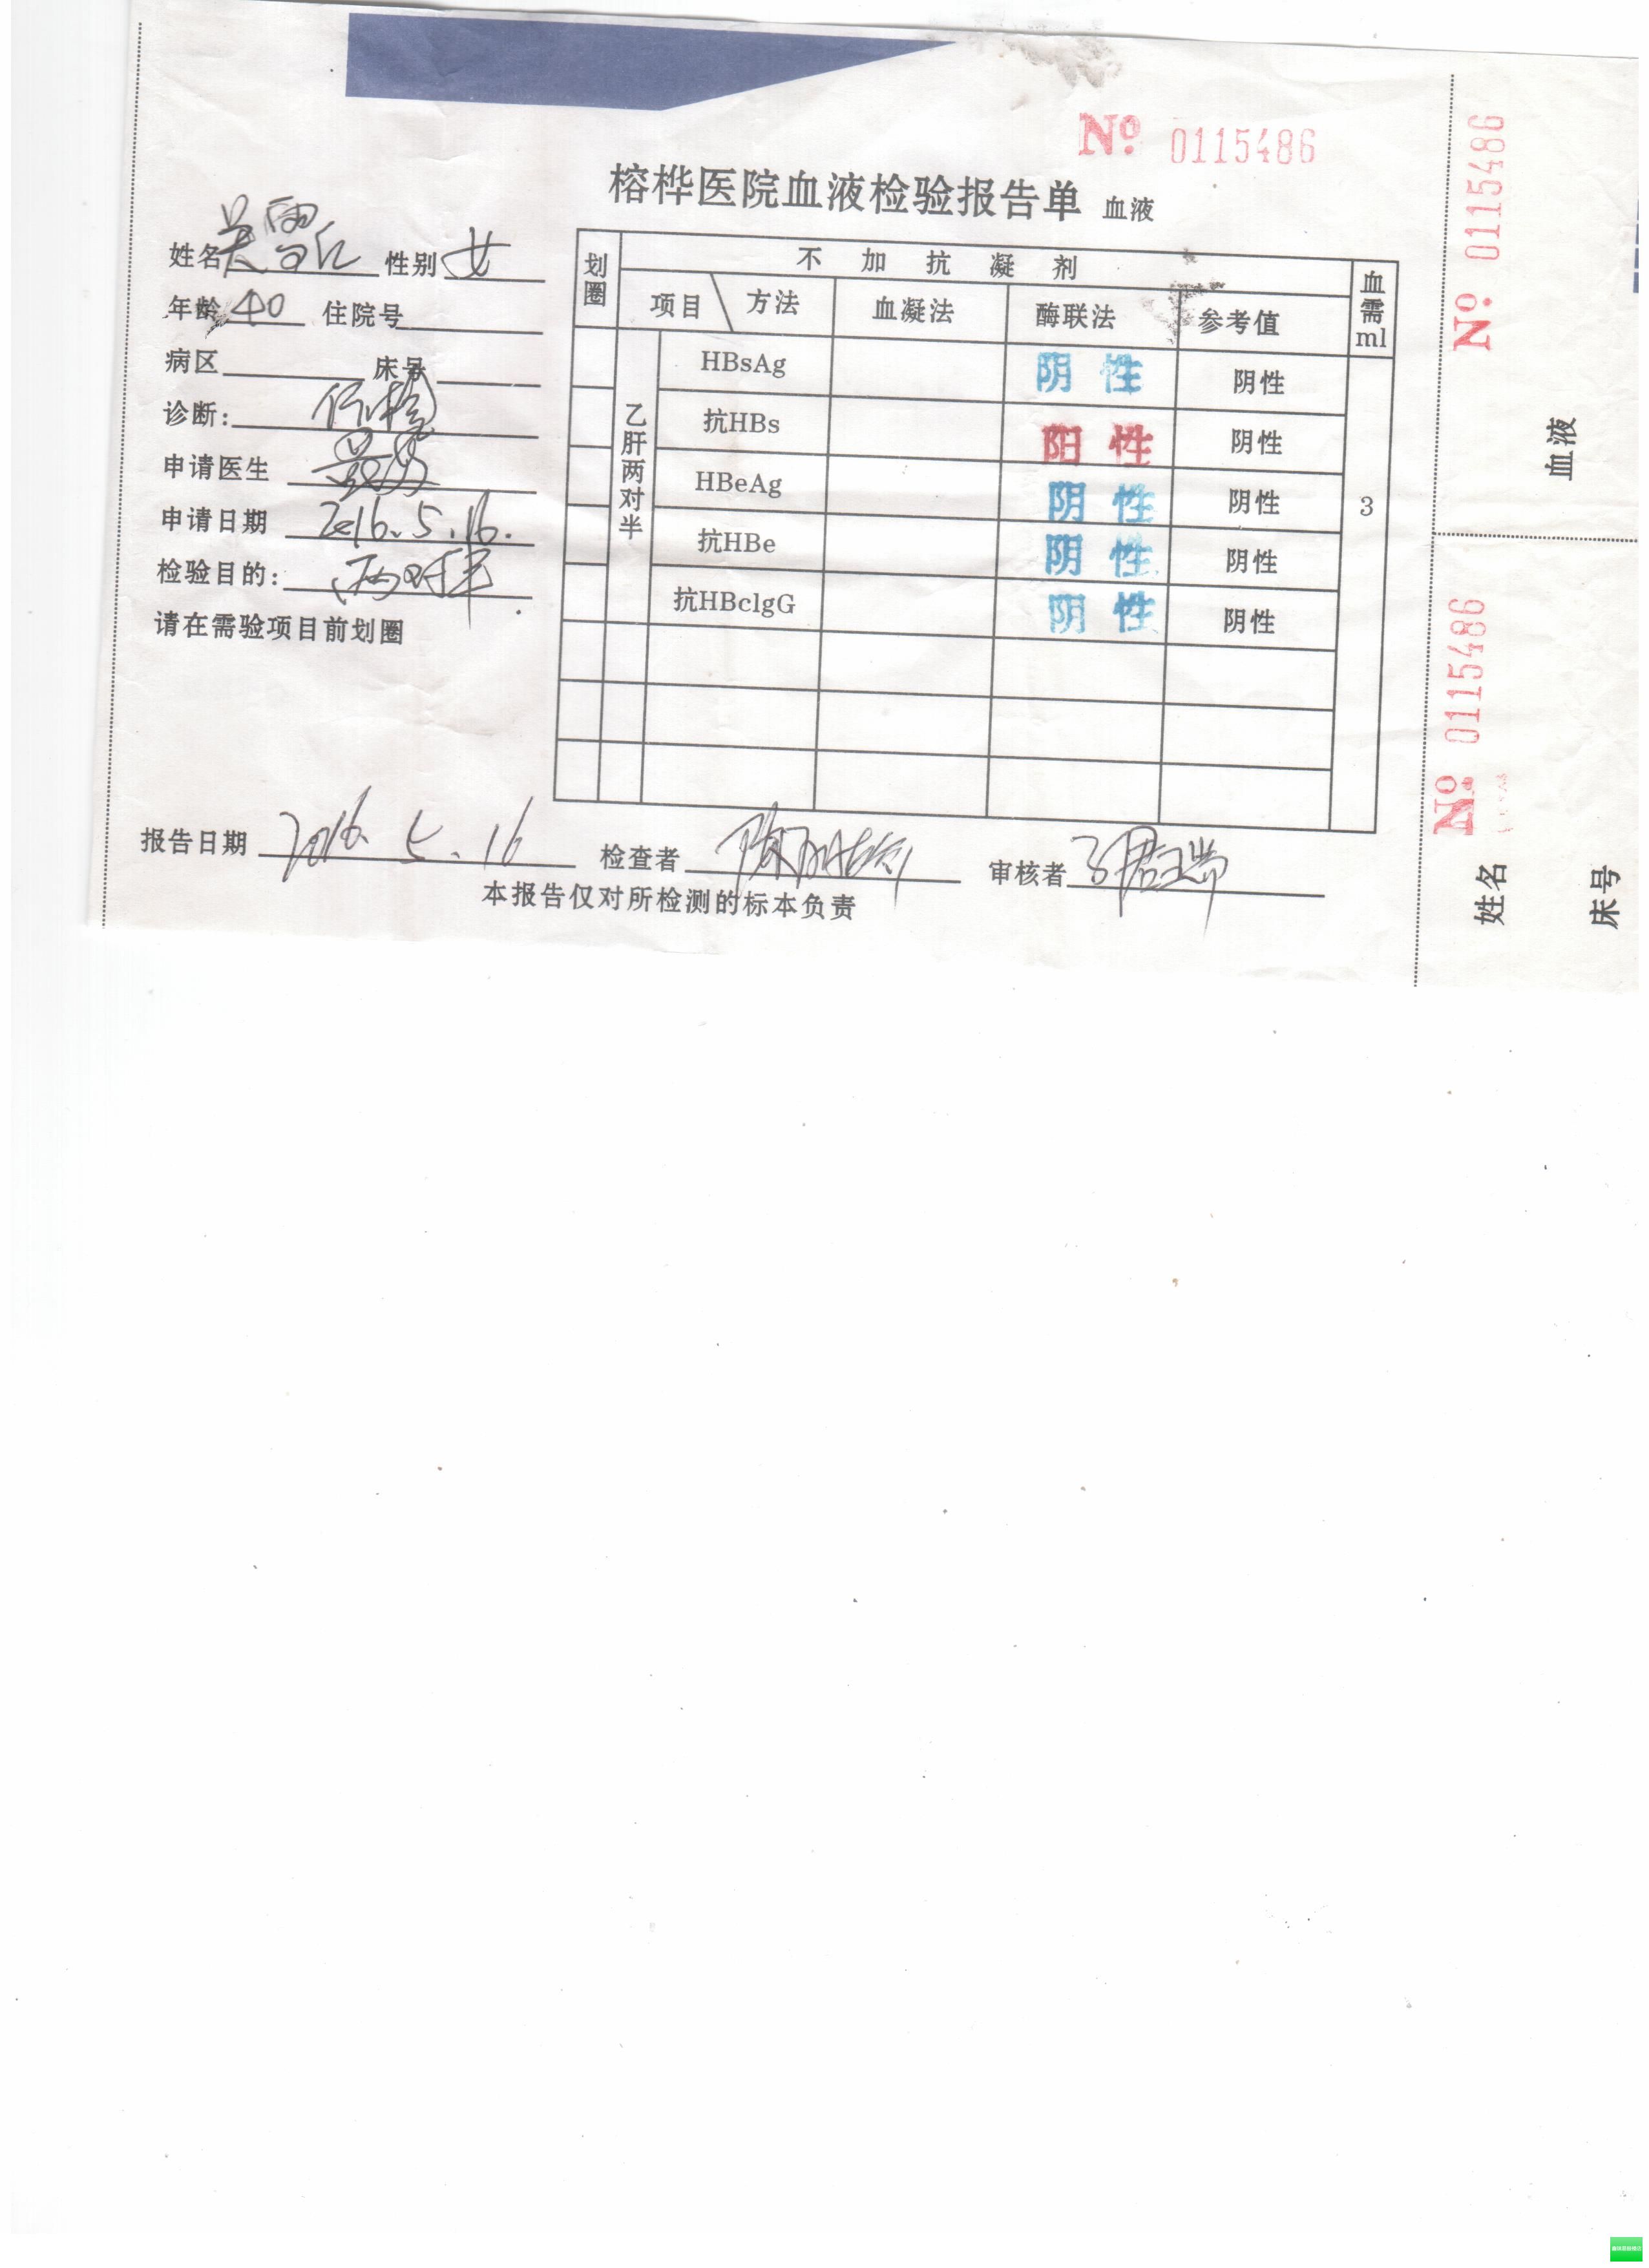 No. 0115486
榕桦医院血液检验报告单 血液
姓名 吴 性别 女
年龄 40 住院号
病区 床号
诊断:
申请医生
申请日期 2016.5.16.
检验目的: 两对半
请在需验项目前划圈
划圈 不加抗凝剂 血需ml
项目 方法 血凝法 酶联法 参考值
乙肝两对半
HBsAg 阴性 阴性
抗HBs 阳性 阴性
HBeAg 阴性 阴性
抗HBe 阴性 阴性
抗HBclgG 阴性 阴性
3
报告日期 2016. 5. 16 检查者 审核者
本报告仅对所检测的标本负责
No. 0115486
血液
No. 0115486
姓名
床号